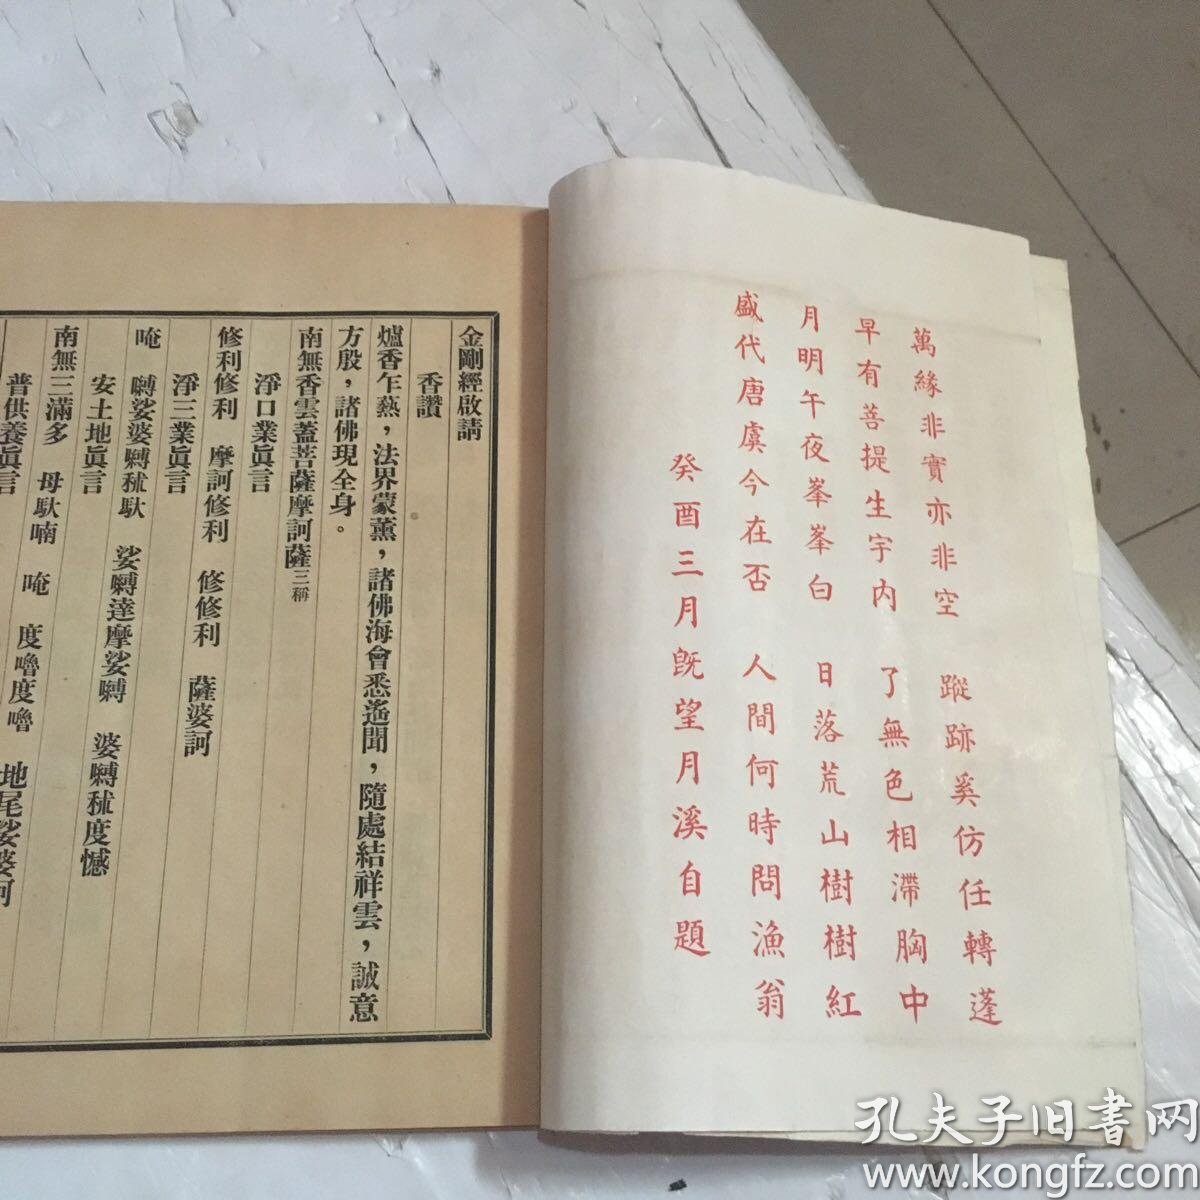 萬緣非實亦非空　蹤跡奚仿任轉蓬
早有菩提生宇內　了無色相滯胸中
月明午夜峯峯白　日落荒山樹樹紅
盛代唐虞今在否　人間何時問漁翁
癸酉三月旣望月溪自題
金剛經啟請
香讚
爐香乍爇，法界蒙薰，諸佛海會悉遙聞，隨處結祥雲，誠意
方殷，諸佛現全身。
南無香雲蓋菩薩摩訶薩三稱
淨口業眞言
修利修利　摩訶修利　修修利　薩婆訶
淨三業眞言
唵　嚩娑婆嚩秫馱　娑嚩達摩娑嚩　婆嚩秫度憾
安土地眞言
南無三滿多　母馱喃　唵　度嚕度嚕　地尾娑婆訶
普供養眞言
孔夫子旧书网
www.kongfz.com